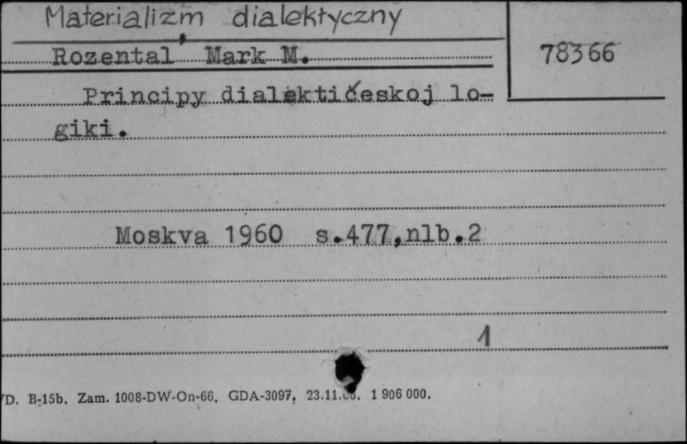 Materializm dialektyczny
Rozental' Mark M.
78366
Principy dialektičeskoj lo-
giki.
Moskva 1960 s.477,nlb.2
1
D. B-15b. Zam. 1008-DW-On-66. GDA-3097. 1 906 000.